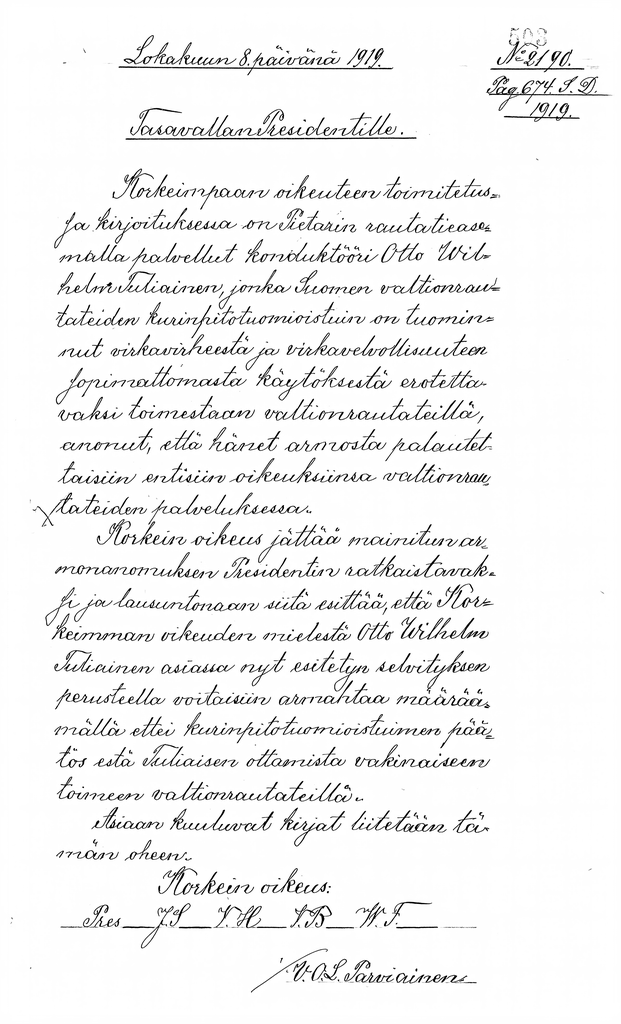 503
Lokakuun 8. päivänä 1919.
No 2190.
Pag 674. S. D.
1919.
Tasavallan Presidentille.
Korkeimpaan oikeuteen toimitetus=
sa kirjoituksessa on Pietarin rautatiease=
malla palvellut konduktööri Otto Wil=
helm Tuliainen, jonka Suomen valtionrau=
tateiden kurinpitotuomioistuin on tuomin=
nut virkavirheestä ja virkavelvollisuuteen
sopimattomasta käytöksestä erotetta-
vaksi toimestaan valtionrautateillä,
anonut, että hänet armosta palautet-
taisiin entisiin oikeuksiinsa valtionrau=
tateiden palveluksessa.
Korkein oikeus jättää mainitun ar=
monanomuksen Presidentin ratkaistavak=
si ja lausuntonaan siitä esittää, että Kor=
keimman oikeuden mielestä Otto Wilhelm
Tuliainen asiassa nyt esitetyn selvityksen
perusteella voitaisiin armahtaa määrää=
mällä ettei kurinpitotuomioistuimen pää=
tös estä Tuliaisen ottamista vakinaiseen
toimeen valtionrautateillä.
Asiaan kuuluvat kirjat liitetään tä=
män oheen.
Korkein oikeus:
Pres J.S V.H I.B W.F.
/V.O.L. Parviainen.